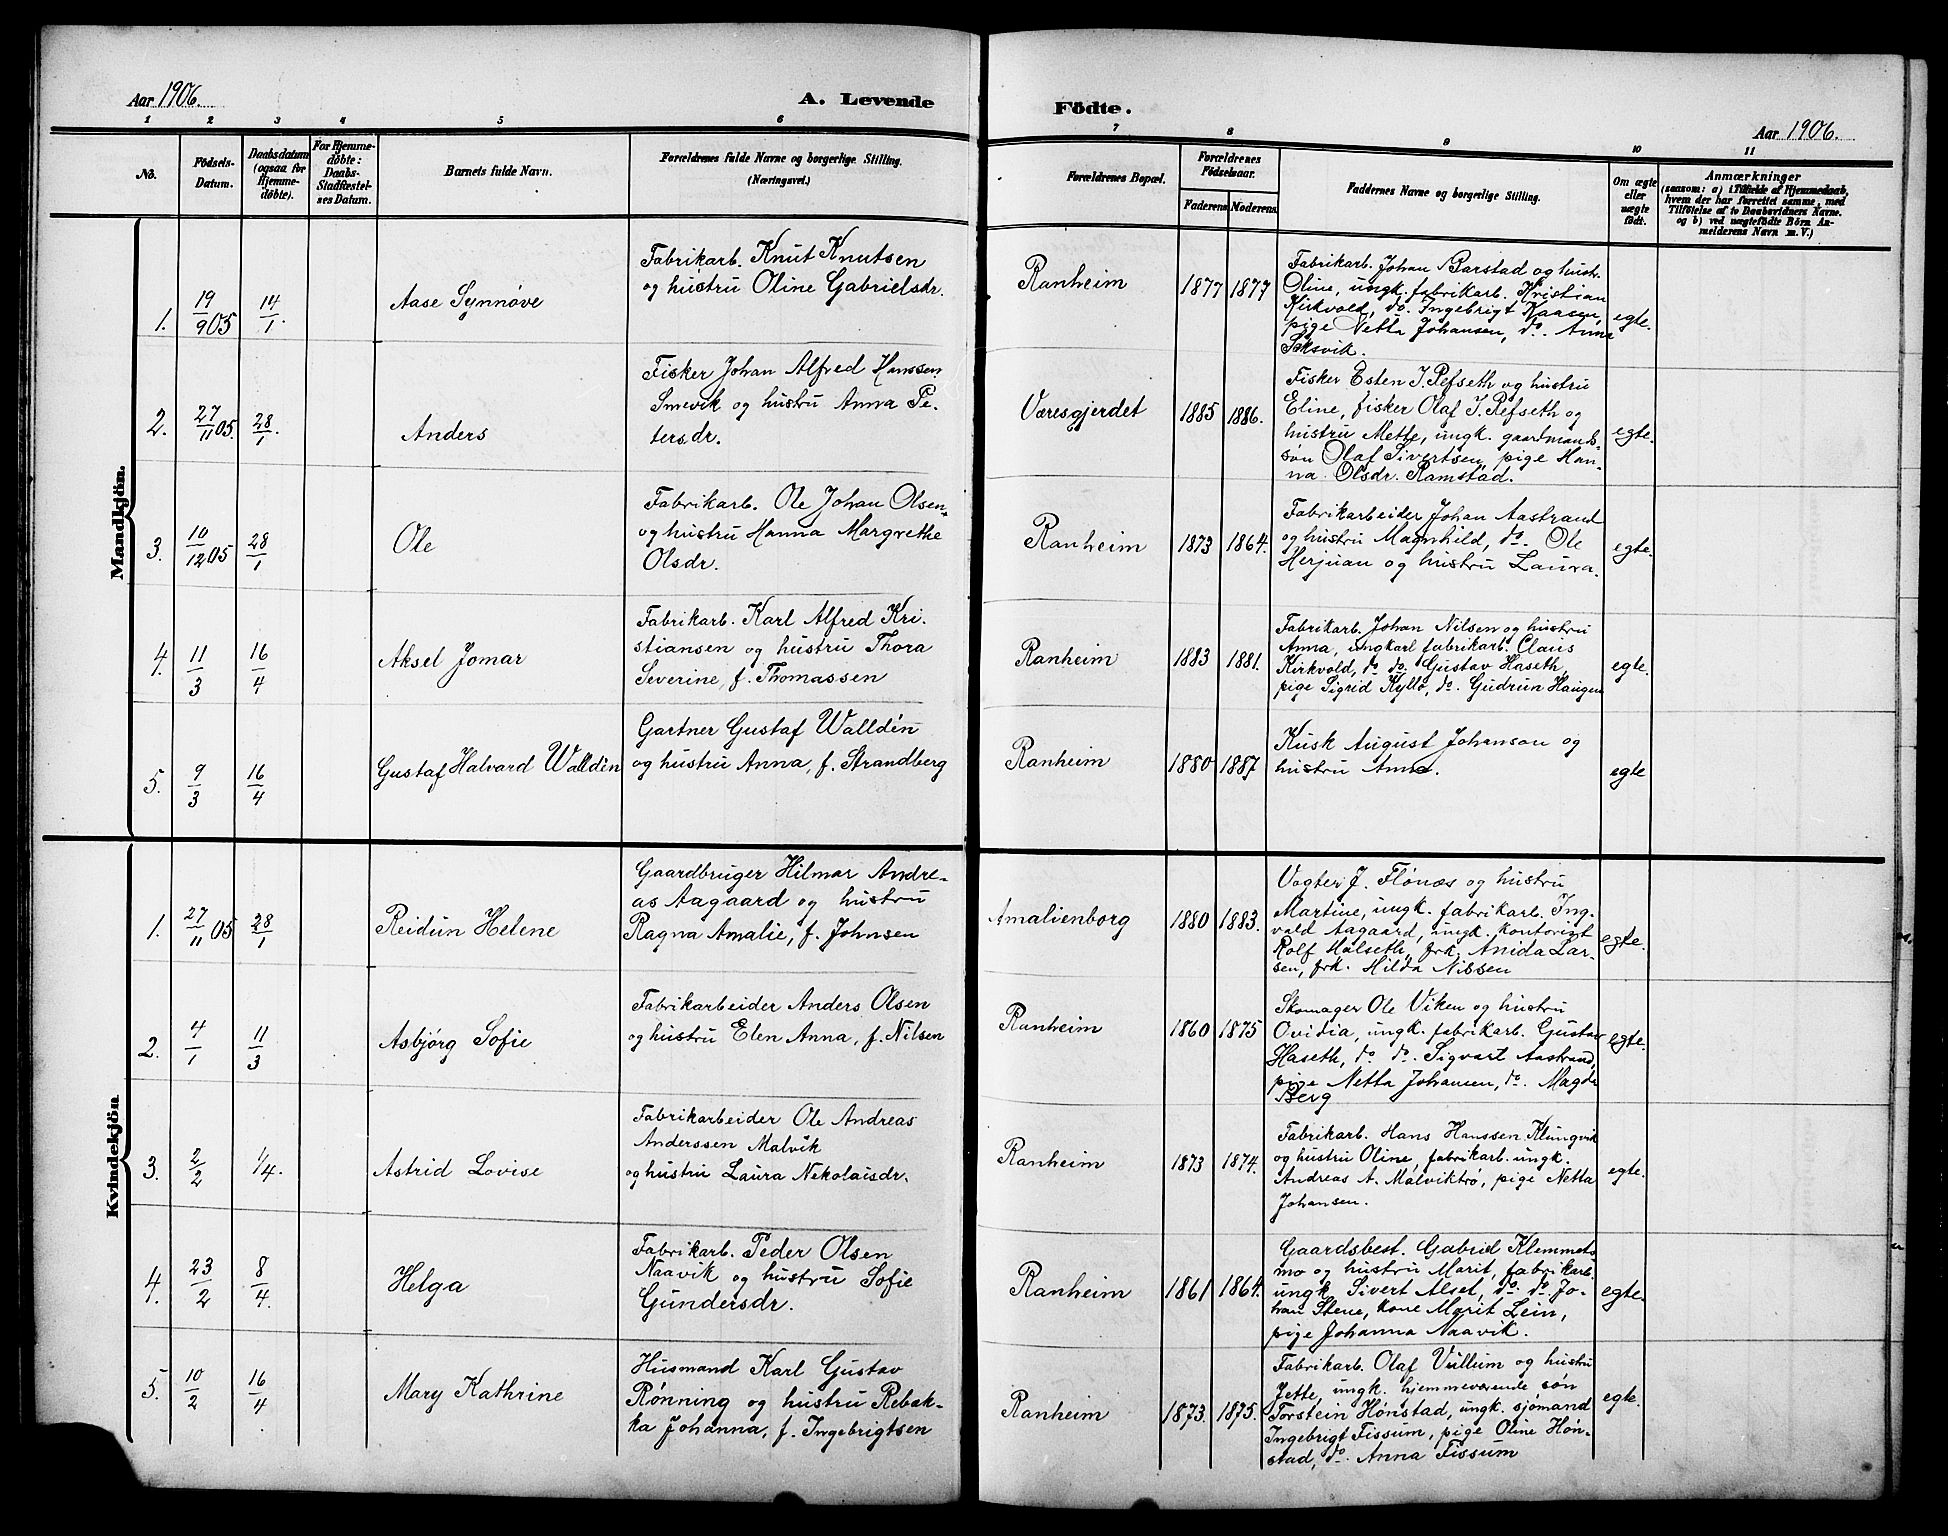 Aar 1906.
A. Levende
Födte.
Aar 1906.
1 2 3 4 5 6 7 8 9 10 11
No.
Födsels-
Datum.
Daabsdatum
(ogsaa for
Hjemme-
döbte).
For Hjemme-
döbte:
Daabs-
Stadfæstel-
ses Datum.
Barnets fulde Navn.
Forældrenes fulde Navne og borgerlige Stilling.
(Næringsvei.)
Forældrenes Bopæl.
Forældrenes
Födselsaar.
Faderens Moderens.
Faddernes Navne og borgerlige Stilling.
Om ægte
eller
uægte
födt.
Anmærkninger
(saasom: a) i Tilfælde af Hjemmedaab,
hvem der har forrettet samme, med
Tilföielse af to Daabsvidners Navne.
og b) ved uægtefödte Börn An-
melderens Navn m. V.)
Mandkjön.
1.
19/9 05
14/1.
Aase Synnøve
Fabrikarb. Knut Knutsen
og hustru Oline Gabrielsdr.
Ranheim
1877 1877
Fabrikarb. Johan Barstad og hustr.
Oline, ungk. fabrikarb. Kristian
Kirkvold, do. Ingebrigt Kaasen,
pige Netta Johansen, do. Anna
Saksvik.
egte.
2.
27/11 05.
28/1.
Anders
Fisker Johan Alfred Hanssen
Smevik og hustru Anna Pe-
tersdr.
Væresgjerdet
1885 1886.
Fisker Esten J. Refseth og hustru
Eline, fisker Olaf J. Refseth og
hustru Mette, ungk. gaardmands-
søn Olaf Sivertsen, pige Han-
na Olsdr. Ramstad.
egte.
3.
10/12 05
28/1
Ole
Fabrikarb. Ole Johan Olsen
og hustru Hanna Margrethe
Olsdr.
Ranheim
1873 1864.
Fabrikarbeider Johan Aastrand
og hustru Magnhild, do. Ole
Herjuan og hustru Laura.
egte.
4.
11/3
16/4
Aksel Jomar
Fabrikarb. Karl Alfred Kri-
stiansen og hustru Thora
Severine, f. Thomassen
Ranheim
1883 1881.
Fabrikarb. Johan Nilsen og hustru
Anna, ungkarl fabrikarb. Claus
Kirkvold, do do. Gustav Haseth,
pige Sigrid Kyllo, do. Gudrun Haugen
egte.
5.
9/3
16/4
Gustaf Halvard Walldén
Gartner Gustaf Walldén
og hustru Anna, f. Strandberg
Ranheim
1880 1887
Kusk August Johanson og
hustru Anna.
egte
Kvindekjön
1.
27/11 05
28/1
Reidun Helene
Gaardbruger Hilmar Andre-
as Aagaard og hustru
Ragna Amalie, f. Johnsen
Amalienborg
1880 1883.
Vogter J. Flónæs og hustru
Martine, ungk. fabrikarb. Ing-
vald Aagaard, ungk. kontorist
Rolf Halseth, frk. Anida Lar-
sen, frk. Hilda Nissen
egte.
2.
4/1
11/3
Asbjórg Sofie
Fabrikarbeider Anders Olsen
og hustru Elen Anna, f. Nilsen
Ranheim
1860 1875
Skomager Ole Viken og hustru
Ovidia, ungk. fabrikarb. Gustav
Haseth, do do. Sigvart Aastrand,
pige Netta Johansen, do. Magda
Berg
egte.
3.
2/2
1/4.
Astrid Lovise
Fabrikarbeider Ole Andreas
Anderssen Malvik
og hustru Laura Nekolaisdr.
Ranheim
1873 1874.
Fabrikarb. Hans Hanssen Klungvik
og hustru Oline, fabrikarb. ungk.
Andreas A. Malviktrø, pige Netta
Johansen.
egte.
4.
23/2
8/4.
Helga
Fabrikarb. Peder Olsen
Naavik og hustru Sofie
Gundersdr.
Ranheim
1861 1864.
Gaardsbest. Gabriel Klemmets
mo og hustru Marit, fabrikarb.
ungk. Sivert Alset, do. do. Jo-
han Stene, kone Marit Lein,
pige Johanna Naavik.
egte.
5.
10/2
16/4
Mary Kathrine
Husmand Karl Gustav
Rønning og hustru Rebek-
ka Johanna, f. Ingebrigtsen
Ranheim
1873. 1875.
Fabrikarb. Olaf Vullum og hustru
Jette, ungk. hjemmeværende søn
Torstein Hónstad, ungk. sjómand
Ingebrigt Fissum, pige Oline Hón-
stad, do. Anna Fissum
egte.